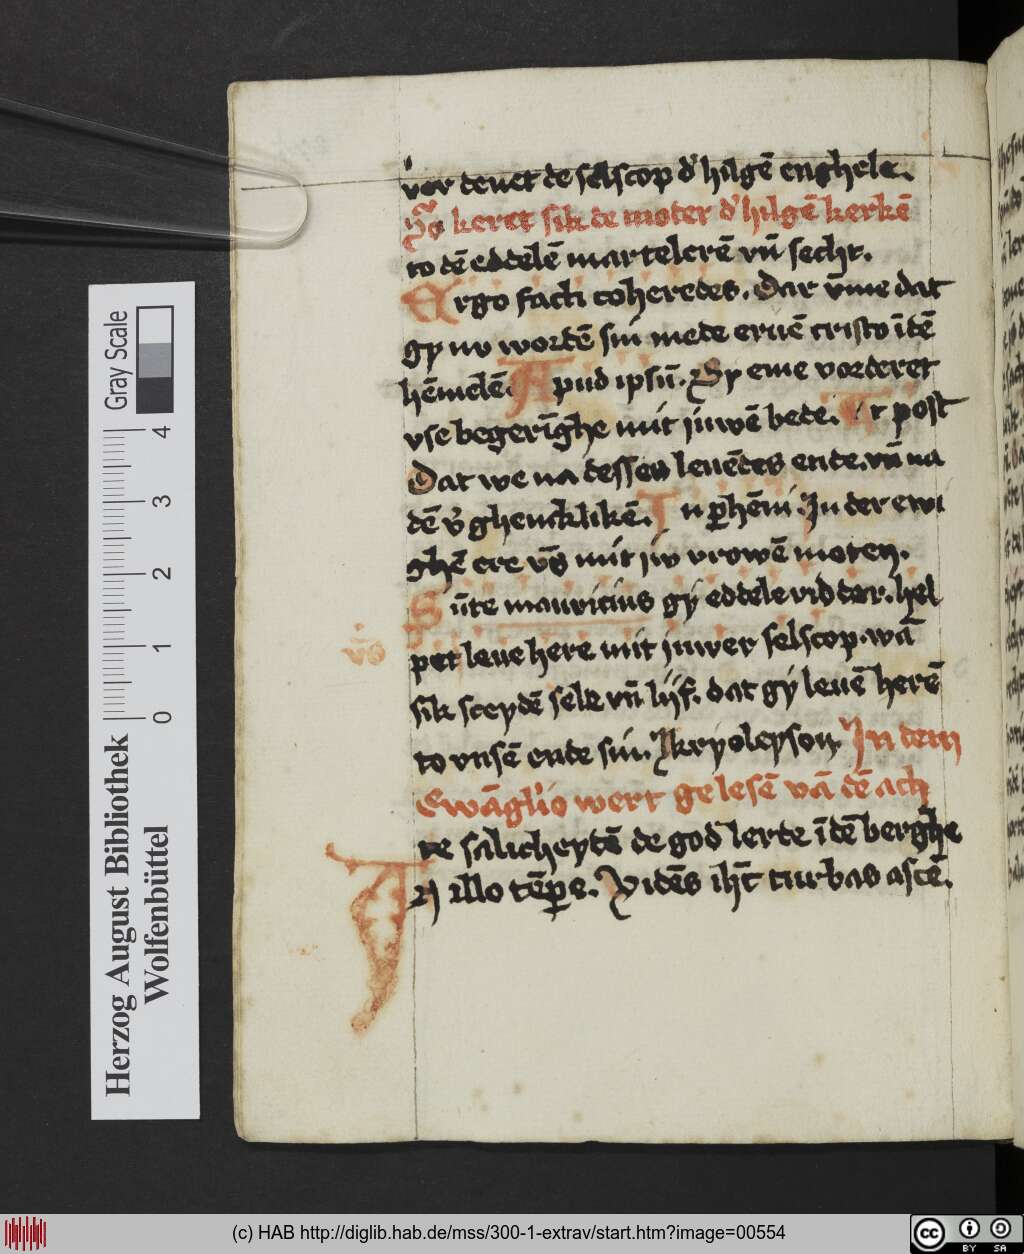 vor denet de selscop d' hilgē enghele.
keret sik de moter d' hilgē kerkē
to dē eddelē martelerē vn̄ secht.
Ergo facti coheredes. Dar v̄me dat
gy nv wordē sin mede eruē cristo īdē
hēmelē. Apud ipsū. Sy eme vorderet
vse begerīghe mit juwē bede. Et post
Dat we na desses leuēdes ende. vn̄ na
dē v'ghencklikē. In p̱hēni. In der ewi
ghē ere vn̄s mit jw vrowē moten.
Sūte mauricius gy eddele ridder. hel
vs
pet leue here mit juwer selscop. wā
sik sceydē sele vn̄ lijf. dat gy leuē herē
to vnsē ende sin. kryoleyson In dem
Ewāglio wert gelesē vā dē ach
te salicheytē de god lerte īdē berghe
In illo tēpe. Vidēs ihc̄ turbas ascē.
Gray Scale
0 1 2 3 4
Herzog August Bibliothek
Wolfenbüttel
(c) HAB http://diglib.hab.de/mss/300-1-extrav/start.htm?image=00554
cc BY SA